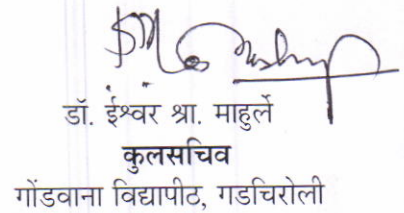 डॉ. ईश्वर श्रा. माहुर्ले
कुलसचिव
गोंडवाना विद्यापीठ, गडचिरोली